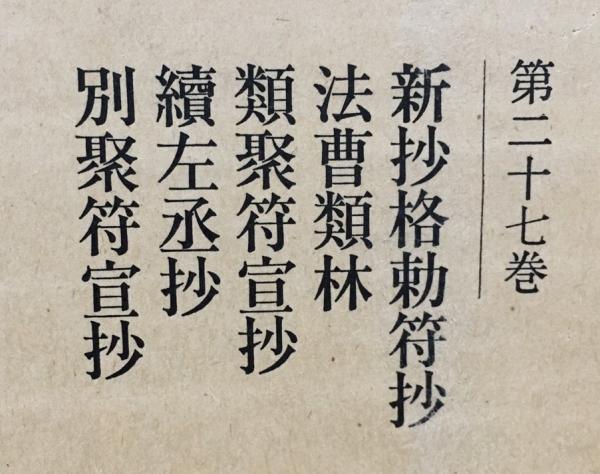 第二十七巻
新抄格勅符抄
法曹類林
類聚符宣抄
續左丞抄
別聚符宣抄